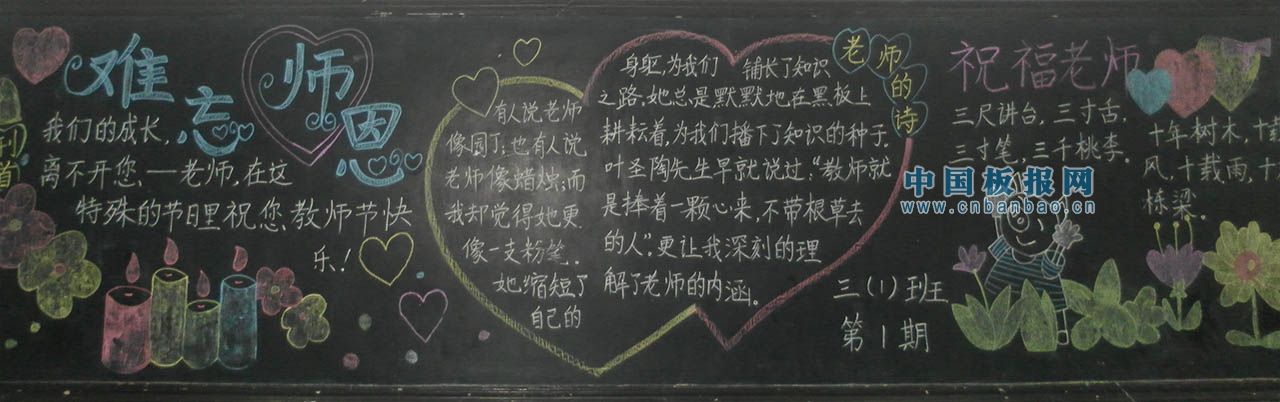 刊
首
难忘师恩
我们的成长,
离不开您.—老师,在这
特殊的节日里祝您,教师节快
乐!
有人说老师
像园丁;也有人说
老师像蜡烛;而
我却觉得她更
像一支粉笔.
她.缩短了
自己的
身躯,为我们 铺长了知识
之路,她总是默默地在黑板上
耕耘着,为我们播下了知识的种子.
叶圣陶先生早就说过:"教师就
是捧着一颗心来,不带根草去
的人".更让我深刻的理
解了老师的内涵。
老师的诗
三(1)班
第1期
祝福老师
三尺讲台,三寸舌.
三寸笔,三千桃李.
十年树木,十载
风,十载雨,十
栋梁.
中国板报网
www.cnbanbao.cn